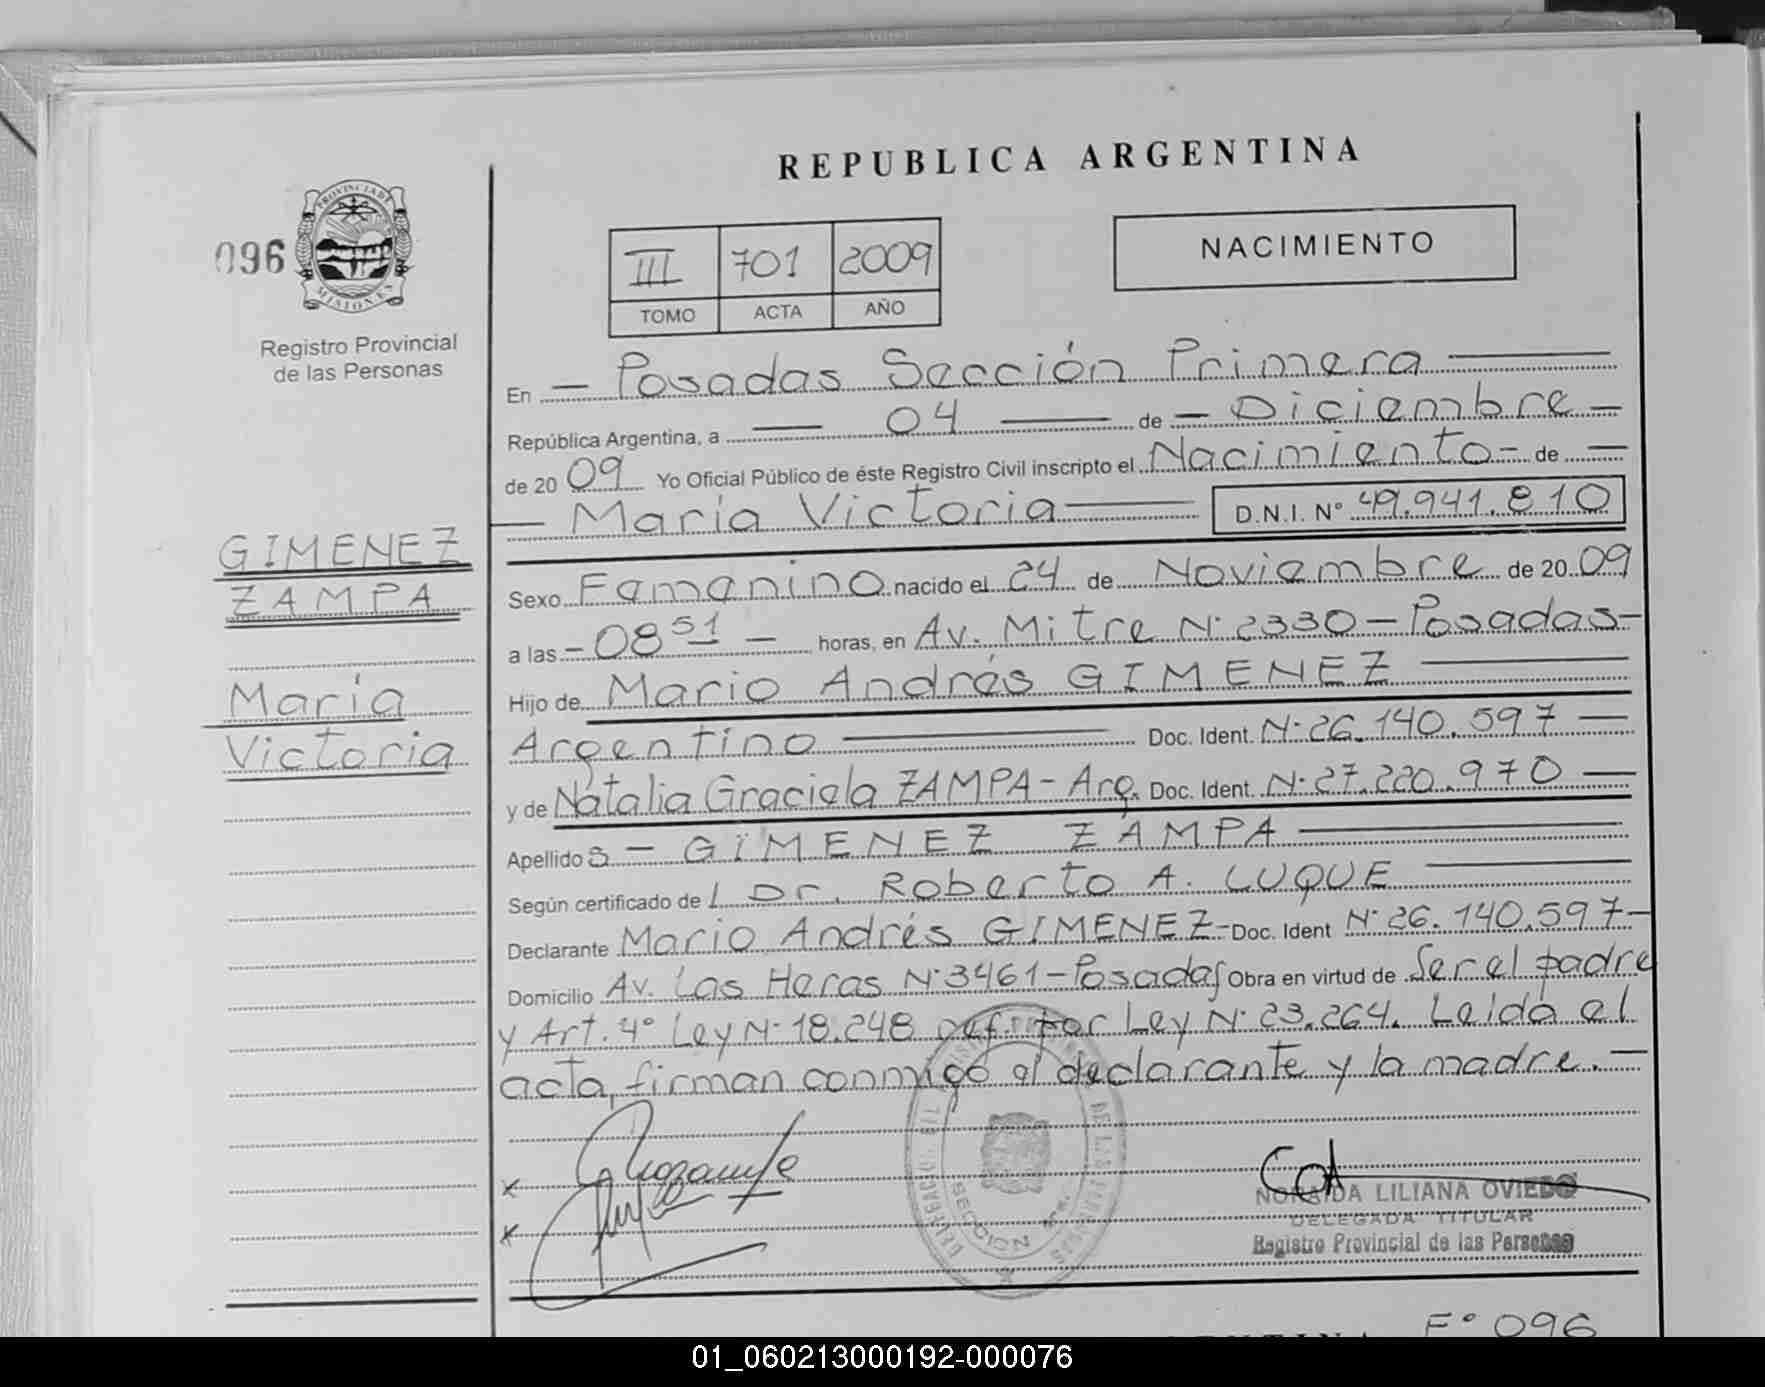 REPUBLICA ARGENTINA
096
PROVINCIA DE
MISIONES
Registro Provincial
de las Personas
III 701 2009
TOMO ACTA AÑO
NACIMIENTO
En — Posadas Sección Primera —
República Argentina, a — 04 — de — Diciembre —
de 20 09 Yo Oficial Público de éste Registro Civil inscripto el Nacimiento - de —
— María Victoria — D.N.I. N° 49.941.810
GIMENEZ
ZAMPA
María
Victoria
Sexo Femenino nacido el 24 de Noviembre de 20 09
a las - 08 51 - horas, en Av. Mitre N° 2330 - Posadas -
Hijo de Mario Andrés GIMENEZ —
Argentino — Doc. Ident. N° 26.140.597 —
y de Natalia Graciela ZAMPA - Arg. Doc. Ident. N° 27.220.970 —
Apellido s — GIMENEZ ZAMPA —
Según certificado de l Dr. Roberto A. LUQUE —
Declarante Mario Andrés GIMENEZ - Doc. Ident N° 26.140.597 -
Domicilio Av. Las Heras N° 3461 - Posadas Obra en virtud de Ser el padre
y Art. 4° Ley N° 18.248 por Ley N° 23.264. Leída el
acta, firman conmigo el declarante y la madre. —
x
x
SECCION
NORAIDA LILIANA OVIEDO
DELEGADA TITULAR
Registro Provincial de las Personas
F° 096
01_060213000192-000076